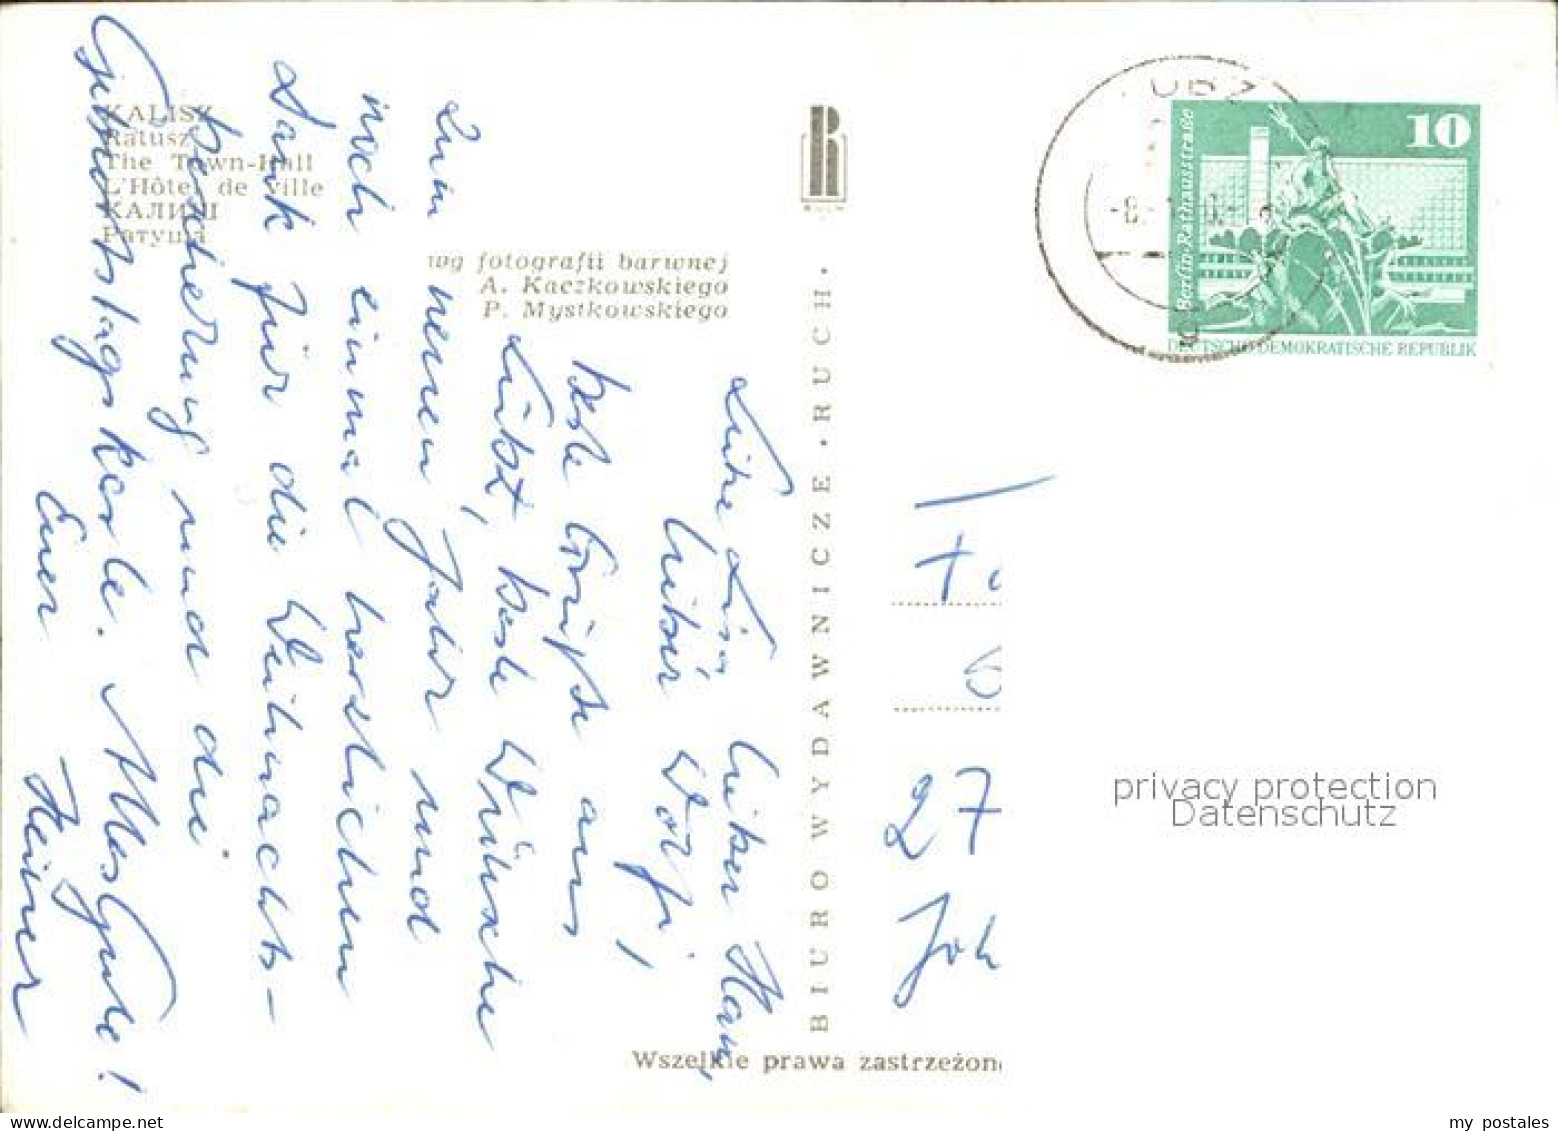 KALISZ
Ratusz
The Town-Hall
L'Hôtel de ville
КАЛИШ
Ратуша
wg fotografii barwnej
A. Kaczkowskiego
P. Mystkowskiego
RUCH
BIURO WYDAWNICZE • RUCH •
Wszelkie prawa zastrzeżon
Liebe Lisa, lieber Hans,
lieber Wolfi,
beste Grüße aus
Lübz, beste Wünsche
zum neuen Jahr und
noch einmal herzlichen
Dank für die Weihnachts-
bescherung und die
Geburtstagskerle. Alles Gute!
Euer Heiner
LÜBZ
-8.
10
Berlin-Rathausstraße
DEUTSCHE DEMOKRATISCHE REPUBLIK
27
Joh
privacy protection
Datenschutz
my postales